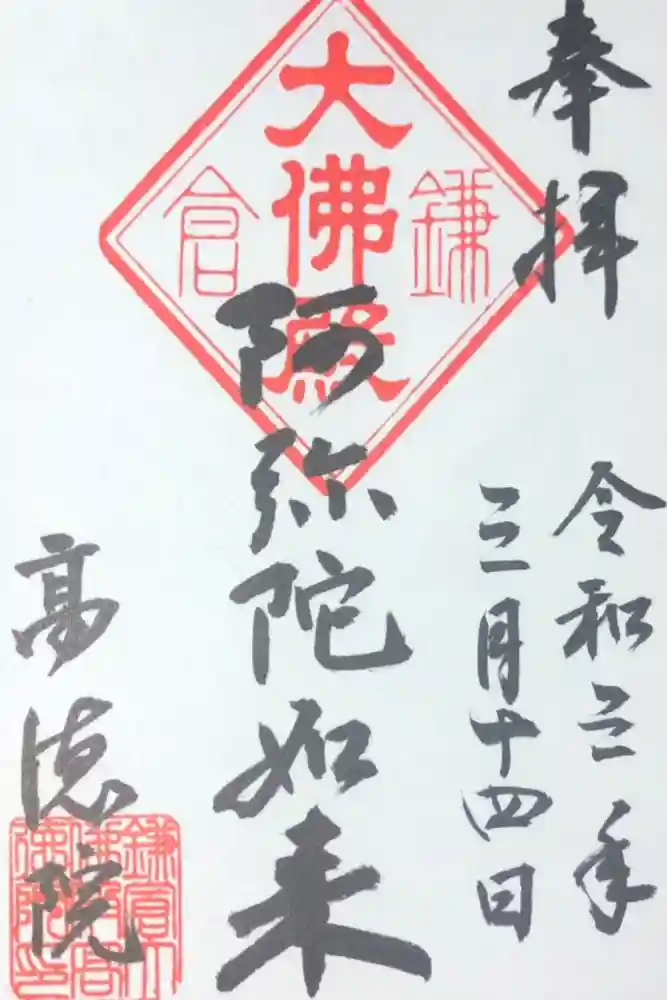 奉拝
令和三年
三月十四日
鎌倉
大佛殿
阿弥陀如来
高徳院